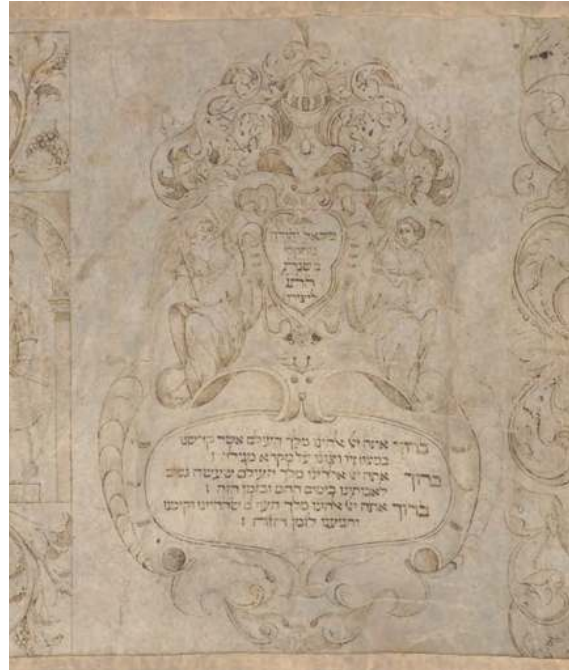 יהודה
משנת
ליצירה
ברוך אתה ייי אלהינו מלך העולם אשר קדשנו
במצוותיו וצונו על מקרא מגילה
ברוך אתה ייי אלהינו מלך העולם שעשה נסים
לאבותינו בימים ההם ובזמן הזה
ברוך אתה ייי אלהינו מלך העולם שהחיינו וקיימנו
והגיענו לזמן הזה